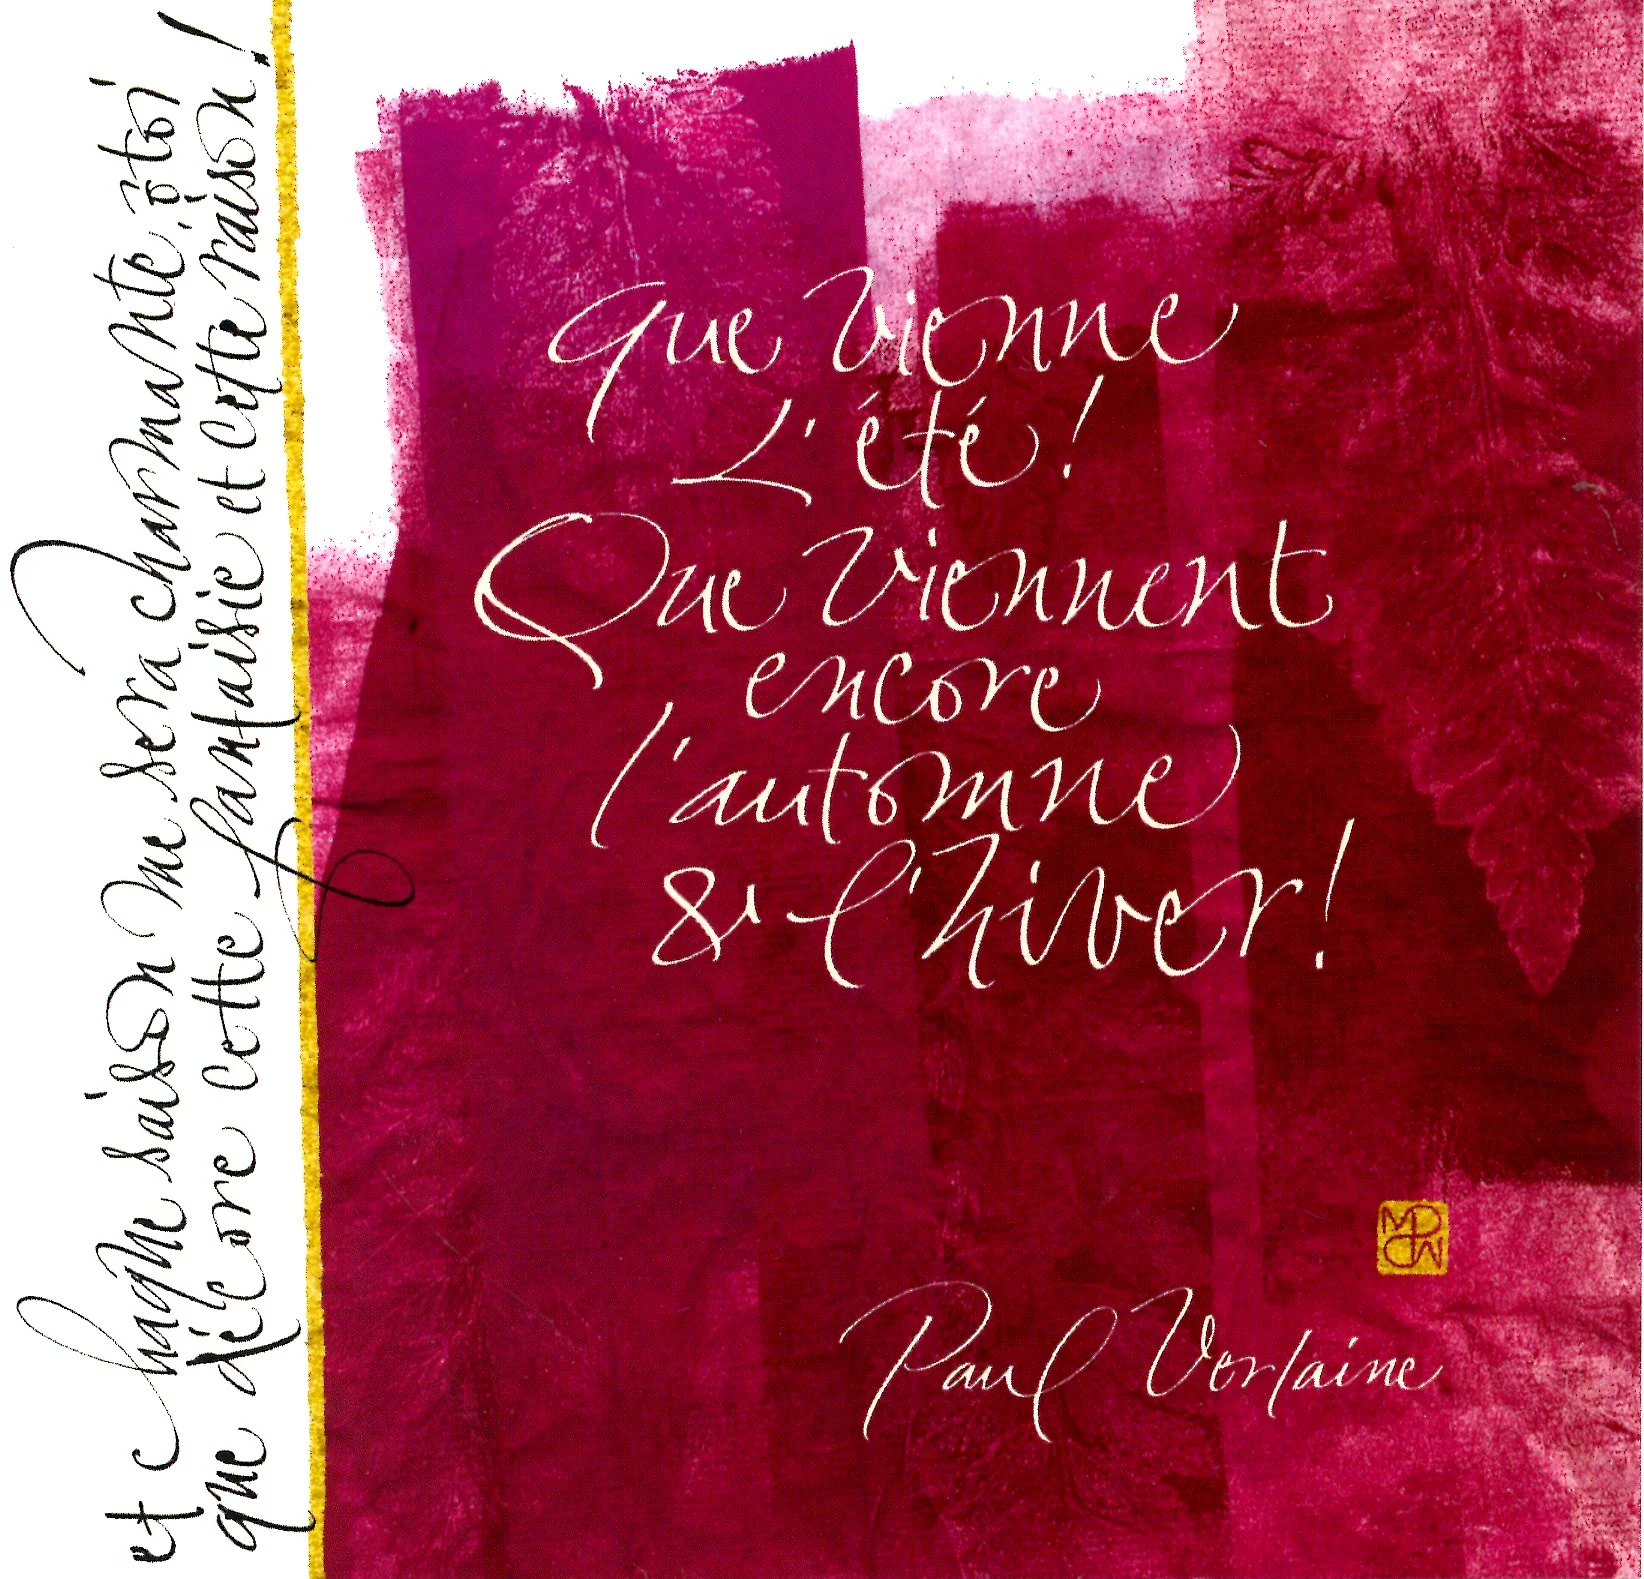 que vienne
L'été!
Que viennent
encore
l'automne
& l'hiver!
et chaque saison me sera charmante, ô toi
que décore cette fantaisie et cette raison!
Paul Verlaine